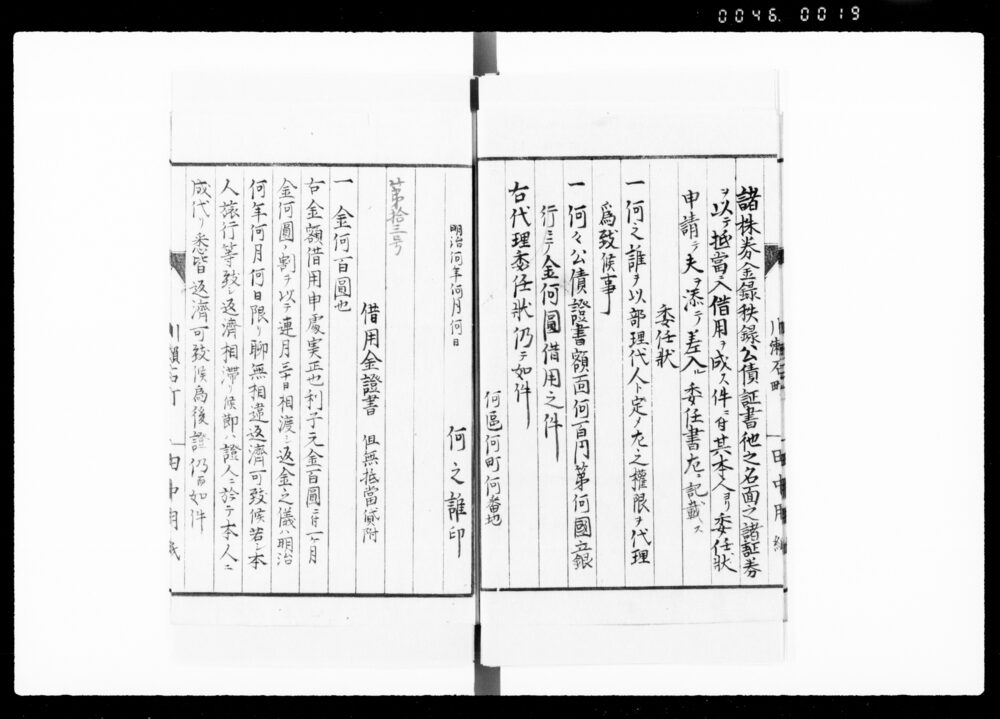 0046. 0019
諸株券金録秩録公債証書他之名面之諸証券
ヲ以テ抵當入借用ヲ成ス件ニ付其本人ヨリ委任狀
申請テ夫ヲ添テ差入ル委任書左ニ記載ス
委任狀
一 何之誰ヲ以部理代人ト定メ左之權限ヲ代理
爲致候事
一 何々公債證書額面何百円第何國立銀
行ニテ金何圓借用之件
右代理委任狀仍テ如件
何區何町何番地
明治何年何月何日
何之誰印
第拾三号
借用金證書 但無抵當貸附
一 金何百圓也
右金額借用申處実正也利子元金百圓ニ付一ヶ月
金何圓ノ割ヲ以テ連月三十日相渡シ返金之儀ハ明治
何年何月何日限リ聊無相違返濟可致候若シ本
人旅行等致シ返濟相滯リ候節ハ證人ニ於テ本人ニ
成代リ悉皆返濟可致候爲後證仍而如件